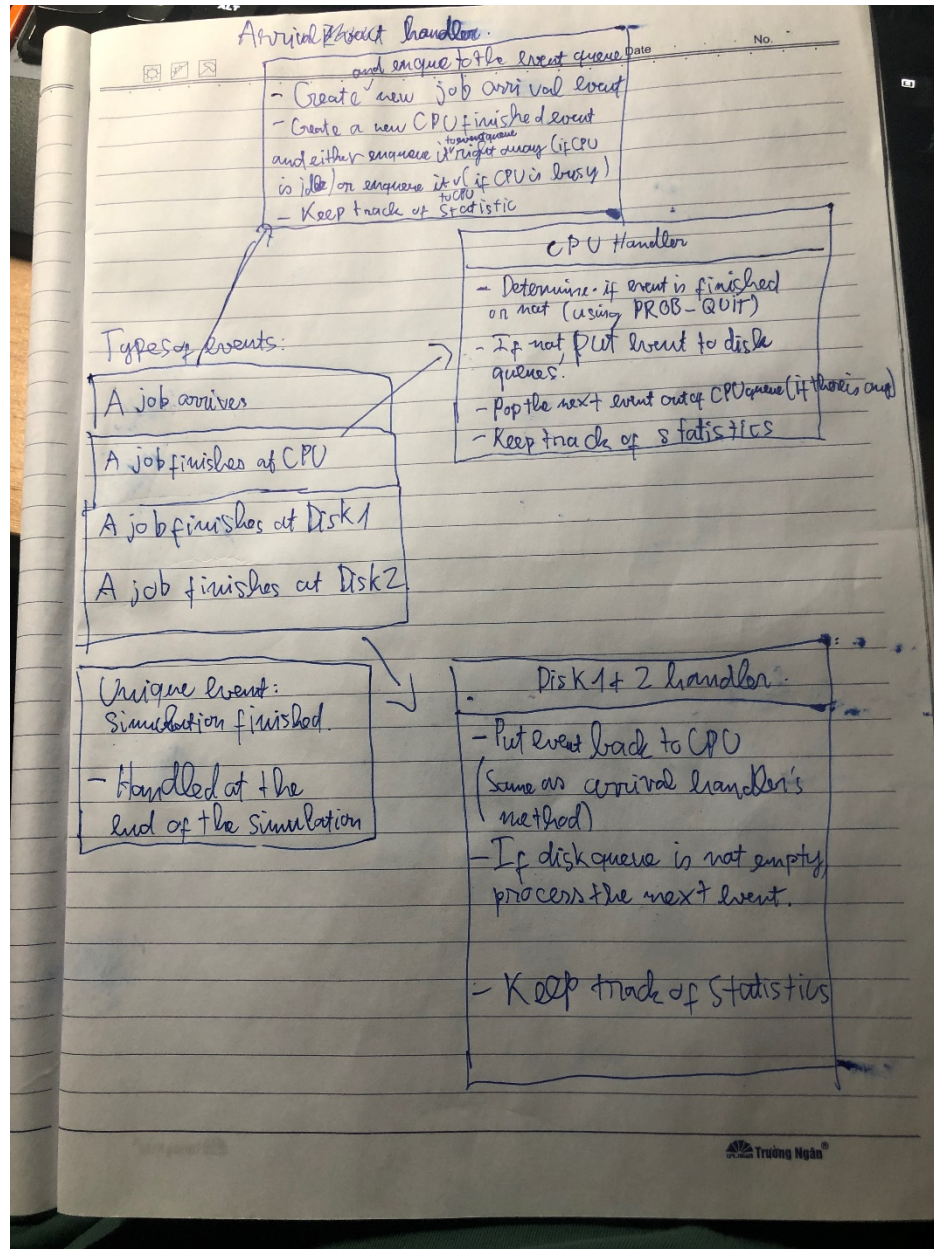 ALT
Arrival Event handler.
Date
No.
and enque to the event queue
- Create new job arrival event
- Create a new CPU finished event
to event queue
and either enqueue it right away (if CPU
is idle) or enqueue it (if CPU is busy)
to CPU
- Keep track of Statistic
CPU Handler
- Determine if event is finished
or not (using PROB_QUIT)
- If not, put event to disk
queues.
- Pop the next event out of CPU queue (if there is any)
- Keep track of statistics
Types of events:
A job arrives
A job finishes at CPU
A job finishes at Disk1
A job finishes at Disk2
Unique event:
Simulation finished.
- Handled at the
end of the simulation
Disk 1 + 2 handler.
- Put event back to CPU
(Same as arrival handler's
method)
- If disk queue is not empty,
process the next event.
- Keep track of Statistics
Trường Ngân®